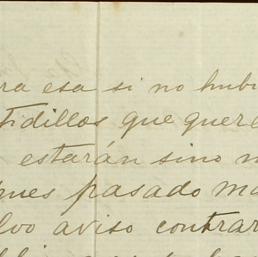 ra esa si no hubi
tidillos que quere
estarán sino m
ues pasado ma
lvo aviso contrar